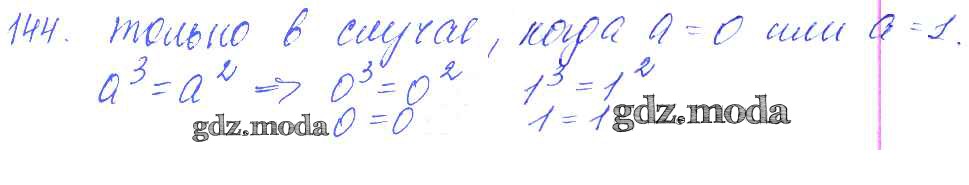 144. только в случае, когда a = 0 или a = 1.
a³ = a² => 0³ = 0² 1³ = 1²
gdz.moda 0 = 0 1 = 1 gdz.moda